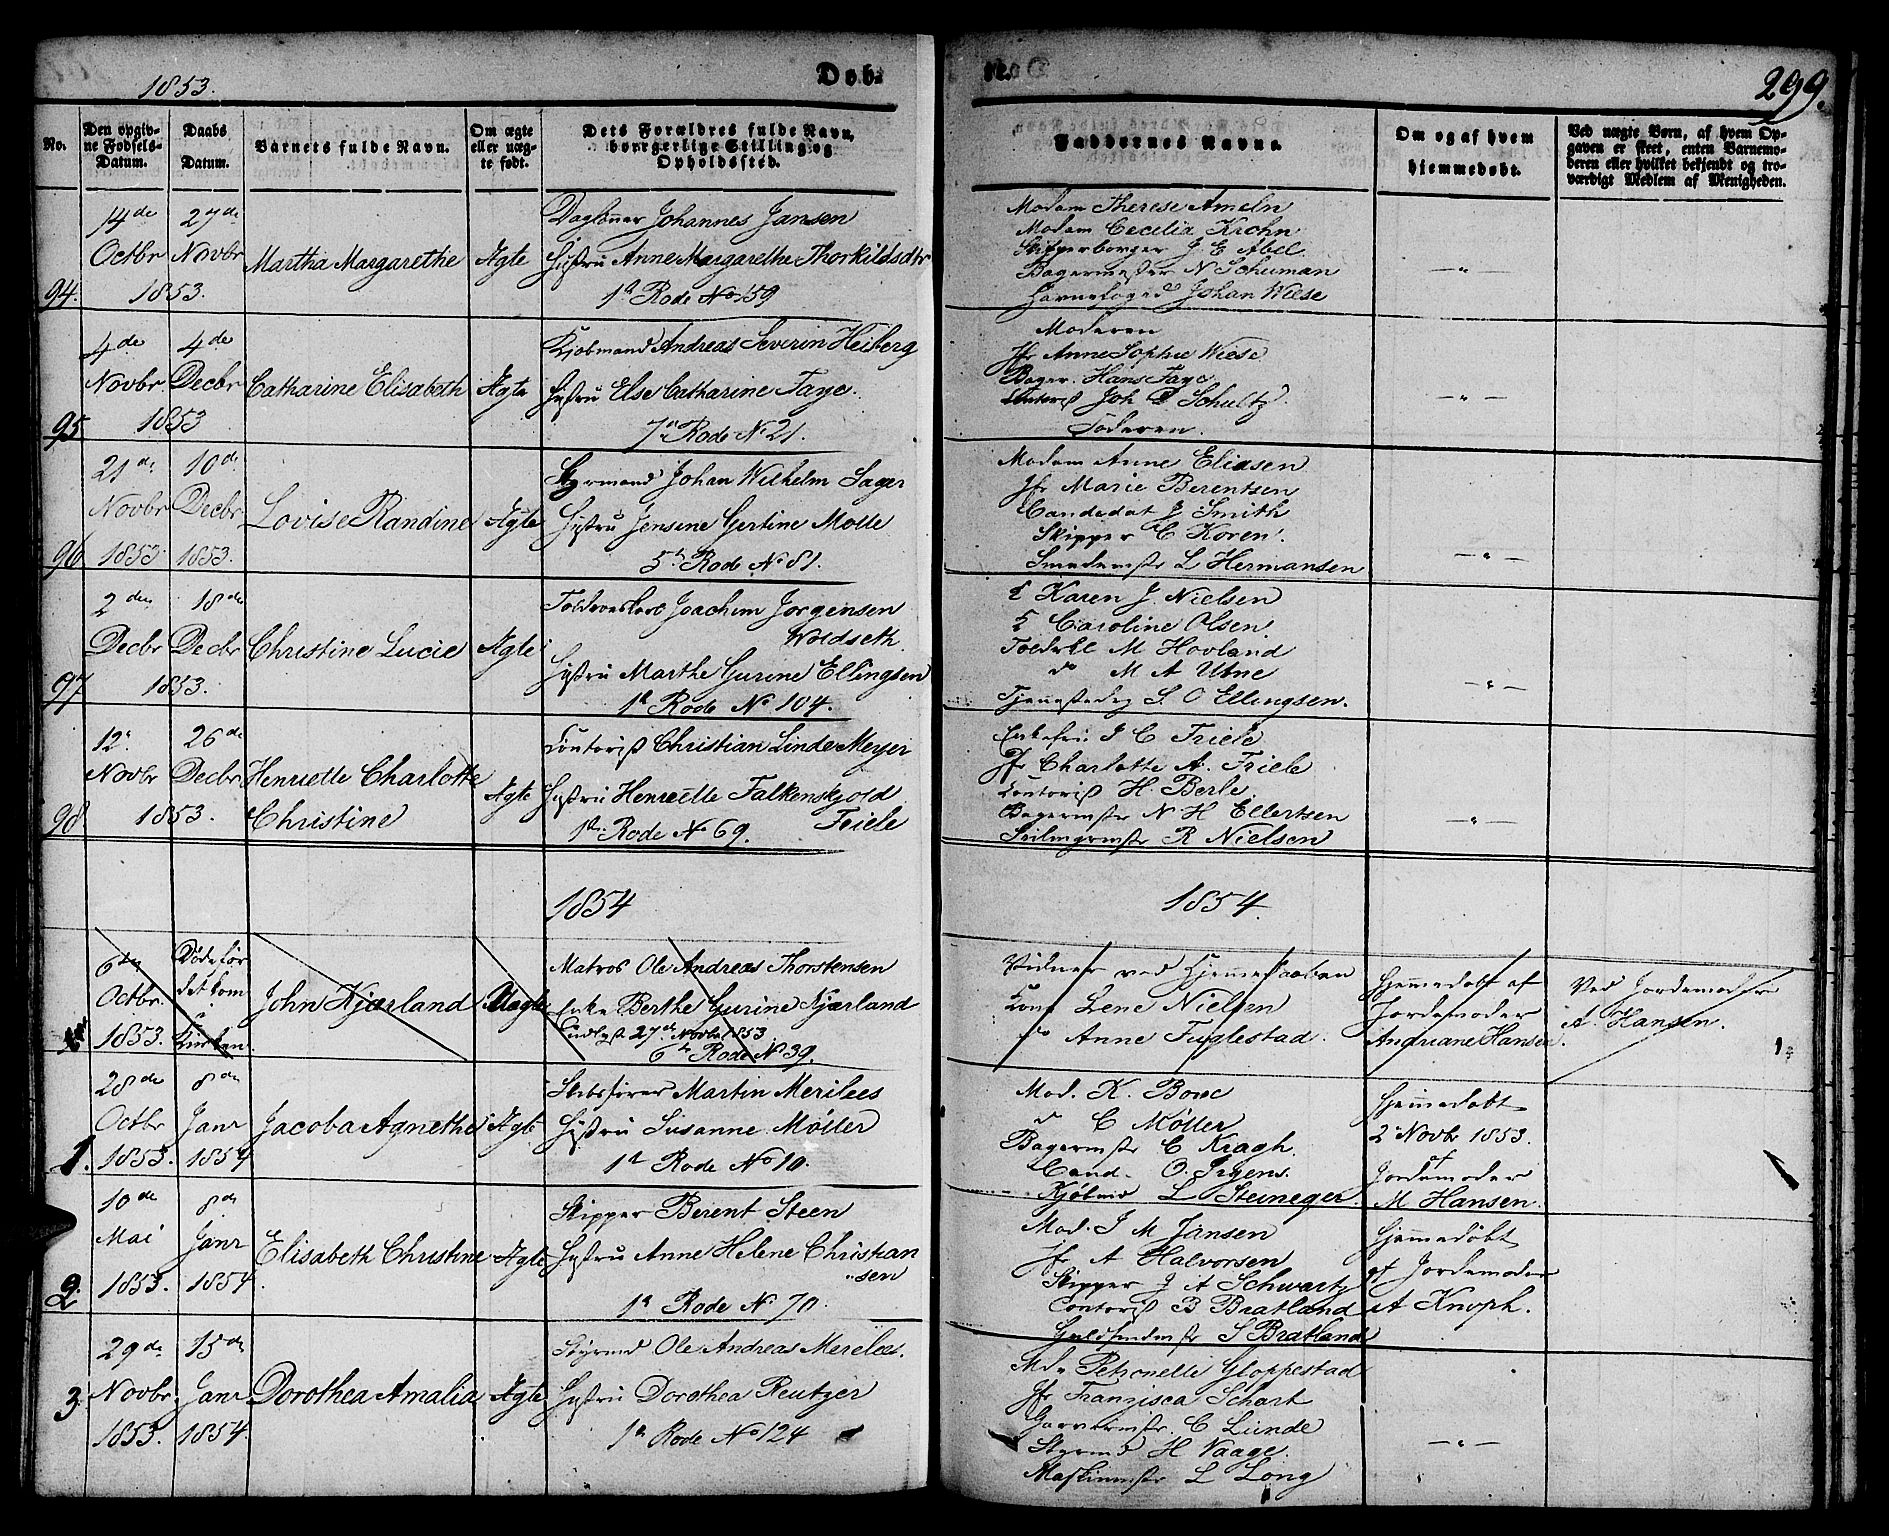 1853.
Døb-
te.
299.
No.
Den opgiv-
ne Fødsels-
Datum.
Daabs
Datum.
Barnets fulde Navn.
Om ægte
eller uæg-
te født.
Dets Forældres fulde Navn,
borgerlige Stilling og
Opholdssted.
Faddernes Navne.
Om og af hvem
hjemmedøbt.
Ved uægte Børn, af hvem Op-
gaven er skeet, enten Barnemo-
deren eller hvilket bekjendt og tro-
værdigt Medlem af Menigheden.
94.
14de
Octbr
27de
Novbr
1853.
Martha Margarethe
Ægte
Dagløner Johannes Jansen
Hustru Anne Margarethe Thorkildsdtr
1te Rode No 159
Madam Therese Ameln
Madam Cecilia Krohn
Skipperborger J E Abel
Bagermester N Schuman
Havnefoged Johan Wiese
— " —
95
4de
Novbr
4de
Decbr
1853
Catharine Elisabeth
Ægte
Kjøbmand Andreas Severin Heiberg
Hustru Else Catharine Faye.
7de Rode No 21.
Moderen
Jfr Anne Sophie Wiese
Bager. Hans Faye
Contorist Joh Schultz.
Faderen.
— " —
96
21de
Novbr
1853
10de
Decbr
1853.
Lovise Randine
Ægte
Styrmand Johan Wilhelm Sager
Hustru Jensine Gertine Molle
5te Rode No 81.
Madam Anne Eliasen
Jfr Marie Berentsen
Candedat J Smith
Skipper C Koren.
Smedemstr L Hermansen
— " —
97
2den
Decbr
18de
Decbr
1853.
Christine Lucie
Ægte
Joachim Jørgensen
Woldseth.
Hustru Marthe Gurine Ellingsen
1te Rode No 104.
Karen J. Nielsen
Caroline Olsen.
M Hovland
do M A Utne
S. O Ellingsen.
— " —
98
12te
Novbr
26de
Decbr
1853.
Henriette Charlotte
Christine
Ægte
Contorist Christian Linde Meyer
Hustru Henriette Falkenskjold
Friele
1te Rode No 69.
J C Friele
Jfr Charlotte A. Friele
Contorist H. Berle.
Bagermstr N H Ellertsen
R Nielsen
— " —
1854
1854.
6te
Octbr.
1853.
Døde før
det kom
i
Kirken.
John Kjærland
Uægte
Matros Ole Andreas Thorstensen
Enke Berthe Gurine Kjærland
27de Novbr 1853
6te Rode No 39.
Vidner ved Hjemmedaaben
Kone Lene Nielsen
do Anne Fuglestad.
Hjemmedøbt af
Jordemoder
Andriane Hansen.
Ved Jordemoder
A. Hansen.
1.
28de
Octbr
1853.
8de
Janr
1854
Jacoba Agnethe
Ægte
Skibsfører Martin Merilees
Hustru Susanne Møller
1te Rode No 10.
Mad. K. Bowe
do C Møller
Bagermstr C Kragh.
Cand. O. Irgens.
Kjøbmd L Steineger.
Hjemmedøbt
2 Novbr 1853.
af
Jordemoder
M Hansen.
2.
10de
Mai
1853.
8de
Janr
1854.
Elisabeth Christine
Ægte
Skipper Berent Steen
Hustru Anne Helene Christian
sen
1te Rode No 70.
Mad. J M Jansen
Jfr A Halvorsen
Skipper J A Schwartz
Contorist B Bratland
Guldsmedmstr S Bratland
Hjemmedøbt
af Jordemoder
A Knoph.
3.
29de
Novbr.
1853.
15de
Janr
1854.
Dorothea Amalia
Ægte
Styrmd Ole Andreas Merelees.
Hustru Dorothea Reutzer
1te Rode No 124
Md. Petronelle Gloppestad
Jfr Franzisca Schart
Garvermstr. C Lunde
Styrmd H Vaage.
Maskinmstr L Long
— " —